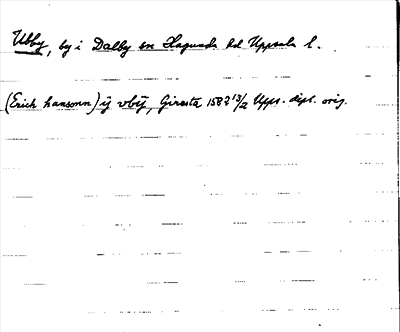 Ubby, by i Dalby sn Hagunda hd Uppsala l.
(Erich hansonn) ij vbÿ, Giresta 1582 13/2 Upps. dipl. orig.